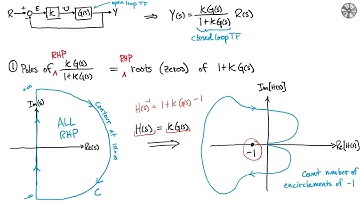 R + E K U G(s) Y
open loop TF
⟹ Y(s) = KG(s) / 1+KG(s) R(s)
closed loop TF
① Poles of KG(s) / 1+KG(s) = roots (zeros) of 1+KG(s)
RHP RHP
+∞ Im(s)
ALL
RHP
Re(s)
contour at ∞
C
-∞
H(s) = 1+KG(s) -1
H(s) = KG(s)
⟹
Im[H(s)]
-1
Re[H(s)]
Count number of
encirclements of -1